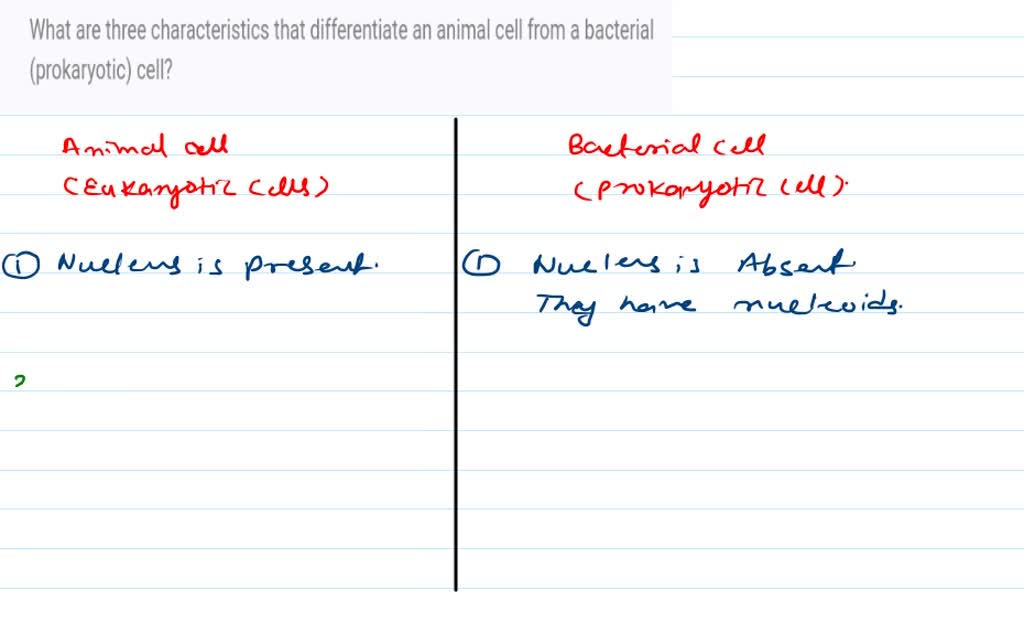 What are three characteristics that differentiate an animal cell from a bacterial
(prokaryotic) cell?
Animal cell
(Eukaryotic cells)
① Nucleus is present.
Bacterial cell
(prokaryotic cell).
① Nucleus is Absent
They have nucleoids.
2